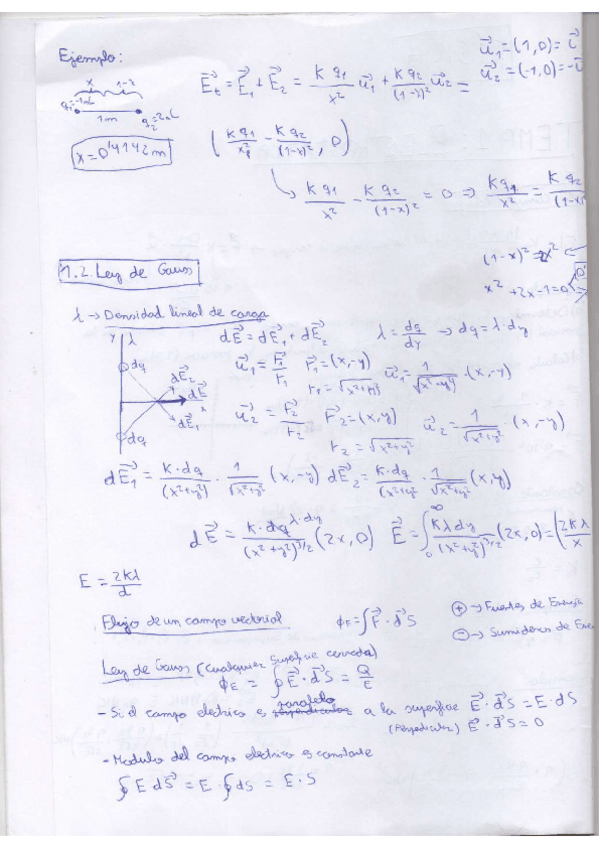 Ejemplo:
x 1-x
q₁=-1nC
1m q₂=2nC
x=0'4142m
E⃗t = E⃗1 + E⃗2 = K q1/x² u⃗1 + K q2/(1-x)² u⃗2 =
u⃗1=(1,0)=i⃗
u⃗2=(-1,0)=-i⃗
(K q1/x² - K q2/(1-x)², 0)
↳ K q1/x² - K q2/(1-x)² = 0 ⇒ K q1/x² = K q2/(1-x)
(1-x)²=2x²
x²+2x-1=0
1.2. Ley de Gauss
λ → Densidad lineal de carga
y λ
dq
dE⃗2
dE⃗
x
dE⃗1
dq
dE⃗ = dE⃗1 + dE⃗2 λ = dq/dy → dq = λ·dy
u⃗1 = r⃗1/r1 r⃗1=(x,-y) r1=√(x²+y²) u⃗1 = 1/√(x²+y²) ·(x,-y)
u⃗2 = r⃗2/r2 r⃗2=(x,y) r2=√(x²+y²) u⃗2 = 1/√(x²+y²) ·(x,-y)
dE⃗1 = K·dq/(x²+y²) · 1/√(x²+y²) (x,-y) dE⃗2 = K·dq/(x²+y²) · 1/√(x²+y²) (x,y)
dE⃗ = K·dq λ·dy/(x²+y²)^3/2 (2x,0) E⃗ = ∫₀^∞ Kλdy/(x²+y²)^3/2 (2x,0) = (2Kλ/x
E = 2Kλ/d
Flujo de un campo vectorial ϕE = ∫F⃗·dS⃗
⊕ → Fuentes de Energía
⊖ → Sumideros de Ener
Ley de Gauss (Cualquier superficie cerrada)
ϕE = ∮E⃗·dS⃗ = Q/ε
- Si el campo electrico es paralelo perpendicular a la superficie E⃗·dS⃗ = E·dS
(Perpendicular) E⃗·dS⃗ = 0
- Modulo del campo electrico es constante
∮E dS⃗ = E·∮dS = E·S